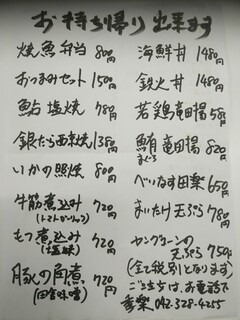 お持ち帰り出来ます
焼魚弁当 800円
おつまみセット 1500円
鮎塩焼 780円
銀だら西京焼 1380円
いかの照焼 800円
牛筋煮込み 720円
(トマトガーリック)
もつ煮込み 720円
(塩味)
豚の角煮 720円
(田舎味噌)
海鮮丼 1480円
鉄火丼 1480円
若鶏竜田揚 580円
鮪竜田揚 820円
まぐろ
べいなす田楽 650円
まいたけ天ぷら 780円
ヤングコーンの
天ぷら 750円
(全て税別となります)
ご注文は、お電話で
042-328-4255